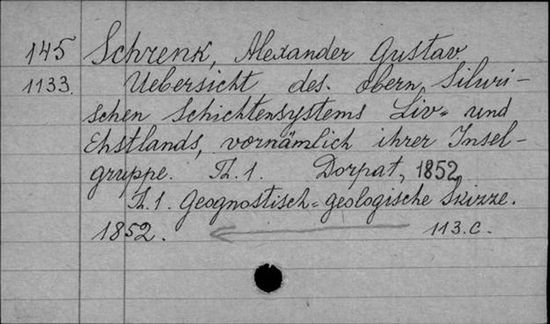 145 Schrenk, Alexander Gustav.
1133. Uebersicht des obern Siluri-
schen Schichtensystems Liv= und
Ehstlands, vornämlich ihrer Insel-
gruppe. Th. 1. Dorpat, 1852.
Th. 1. Geognostisch=geologische Skizze.
1852. 113.C.